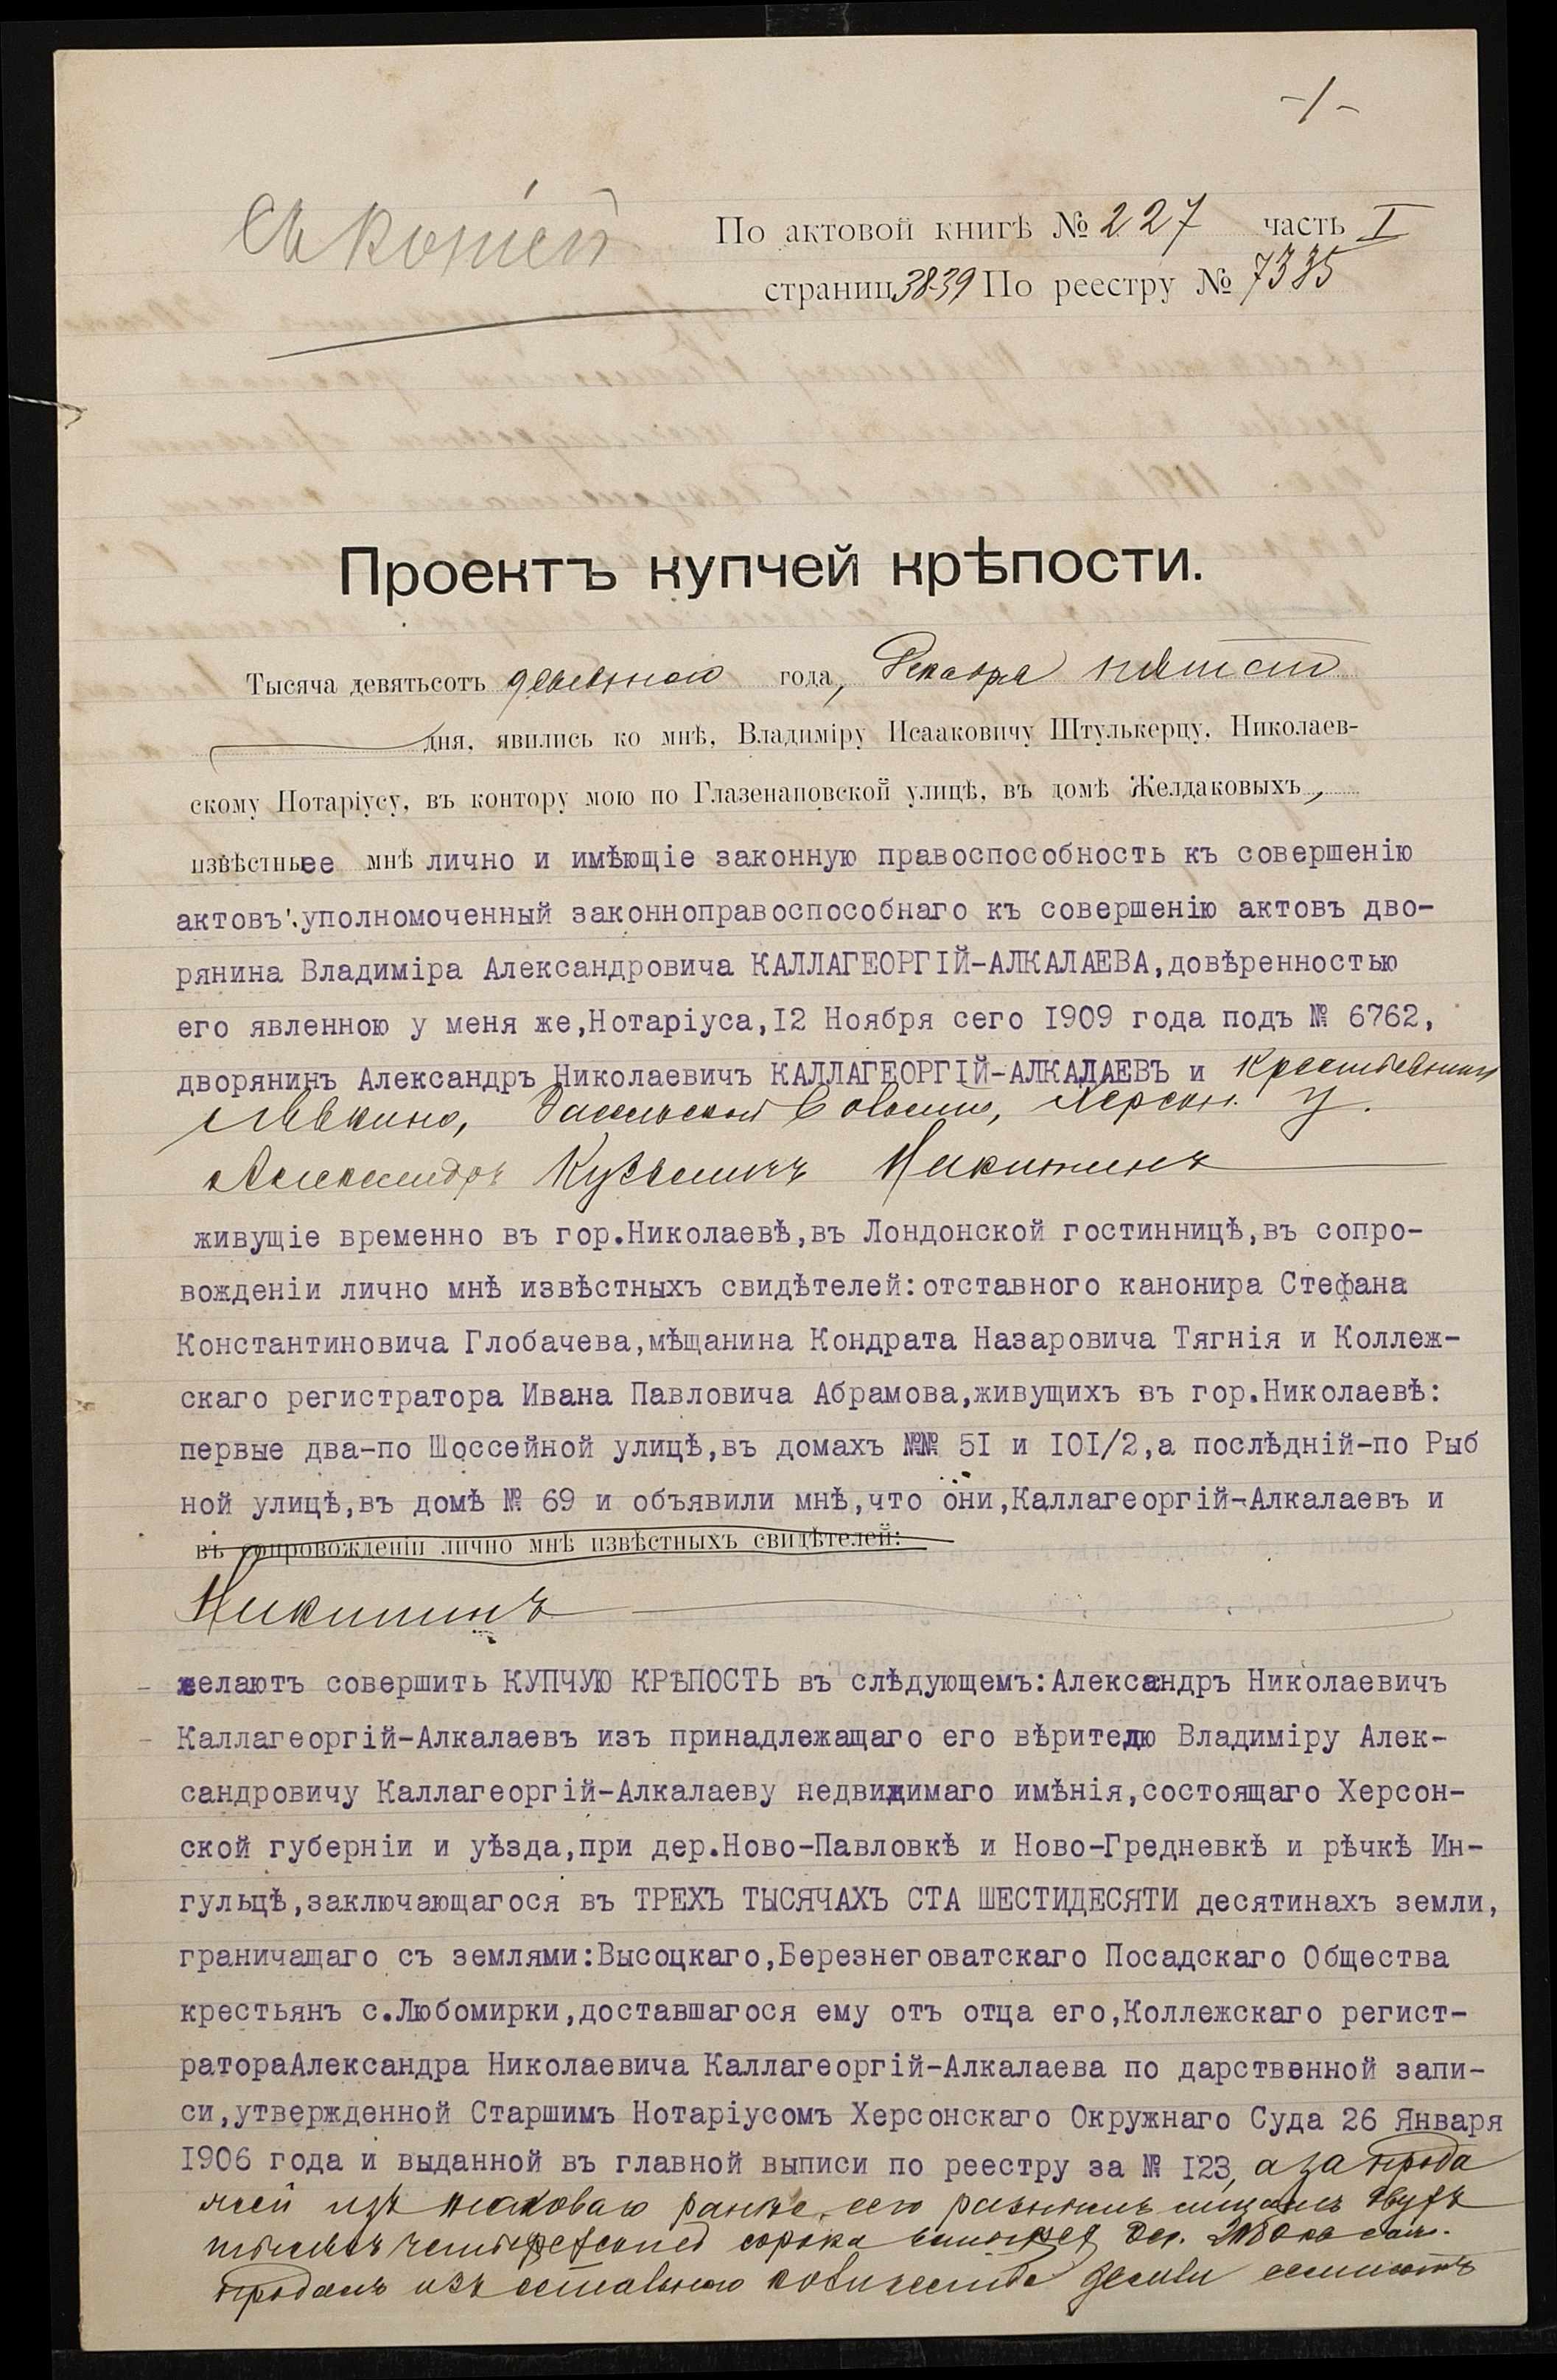 -1-
Съ копіей
По актовой книгѣ № 227 часть I
страниц 38-39 По реестру № 7335
Проектъ купчей крѣпости.
Тысяча девятьсотъ девятаго года, Декабря пятаго
дня, явились ко мнѣ, Владиміру Исааковичу Штулькерцу, Николаев-
скому Нотаріусу, въ контору мою по Глазенаповской улицѣ, въ домѣ Желдаковыхъ,
извѣстные мнѣ лично и имѣющіе законную правоспособность къ совершенію
актовъ: уполномоченный законноправоспособнаго къ совершенію актовъ дво-
рянина Владиміра Александровича КАЛЛАГЕОРГІЙ-АЛКАЛАЕВА,довѣренностью
его явленною у меня же,Нотаріуса,I2 Ноября сего I909 года подъ № 6762,
дворянинъ Александръ Николаевичъ КАЛЛАГЕОРГІЙ-АЛКАЛАЕВЪ и крестьянинъ
волости, Херсон. у.
Александръ Кузьмичъ Никитинъ
живущіе временно въ гор.Николаевѣ,въ Лондонской гостинницѣ,въ сопро-
вожденіи лично мнѣ извѣстныхъ свидѣтелей:отставного канонира Стефана
Константиновича Глобачева,мѣщанина Кондрата Назаровича Тягнія и Коллеж-
скаго регистратора Ивана Павловича Абрамова,живущихъ въ гор.Николаевѣ:
первые два-по Шоссейной улицѣ,въ домахъ №№ 5I и I0I/2,а послѣдній-по Рыб
ной улицѣ,въ домѣ № 69 и объявили мнѣ,что они,Каллагеоргій-Алкалаевъ и
въ сопровожденіи лично мнѣ извѣстныхъ свидѣтелей:
Никитинъ
желаютъ совершить КУПЧУЮ КРѢПОСТЬ въ слѣдующемъ:Александръ Николаевичъ
Каллагеоргій-Алкалаевъ изъ принадлежащаго его вѣрителю Владиміру Алек-
сандровичу Каллагеоргій-Алкалаеву недвижимаго имѣнія,состоящаго Херсон-
ской губерніи и уѣзда,при дер.Ново-Павловкѣ и Ново-Гредневкѣ и рѣчкѣ Ин-
гульцѣ,заключающагося въ ТРЕХЪ ТЫСЯЧАХЪ СТА ШЕСТИДЕСЯТИ десятинахъ земли,
граничащаго съ землями:Высоцкаго,Березнеговатскаго Посадскаго Общества
крестьянъ с.Любомирки,доставшагося ему отъ отца его,Коллежскаго регист-
ратораАлександра Николаевича Каллагеоргій-Алкалаева по дарственной запи-
си,утвержденной Старшимъ Нотаріусомъ Херсонскаго Окружнаго Суда 26 Января
I906 года и выданной въ главной выписи по реестру за № I23, а за прода
жей изъ таковаго ранѣе сего разнымъ лицамъ двухъ
тысячъ четырехсотъ сорока дес.
продалъ изъ остального количества земли